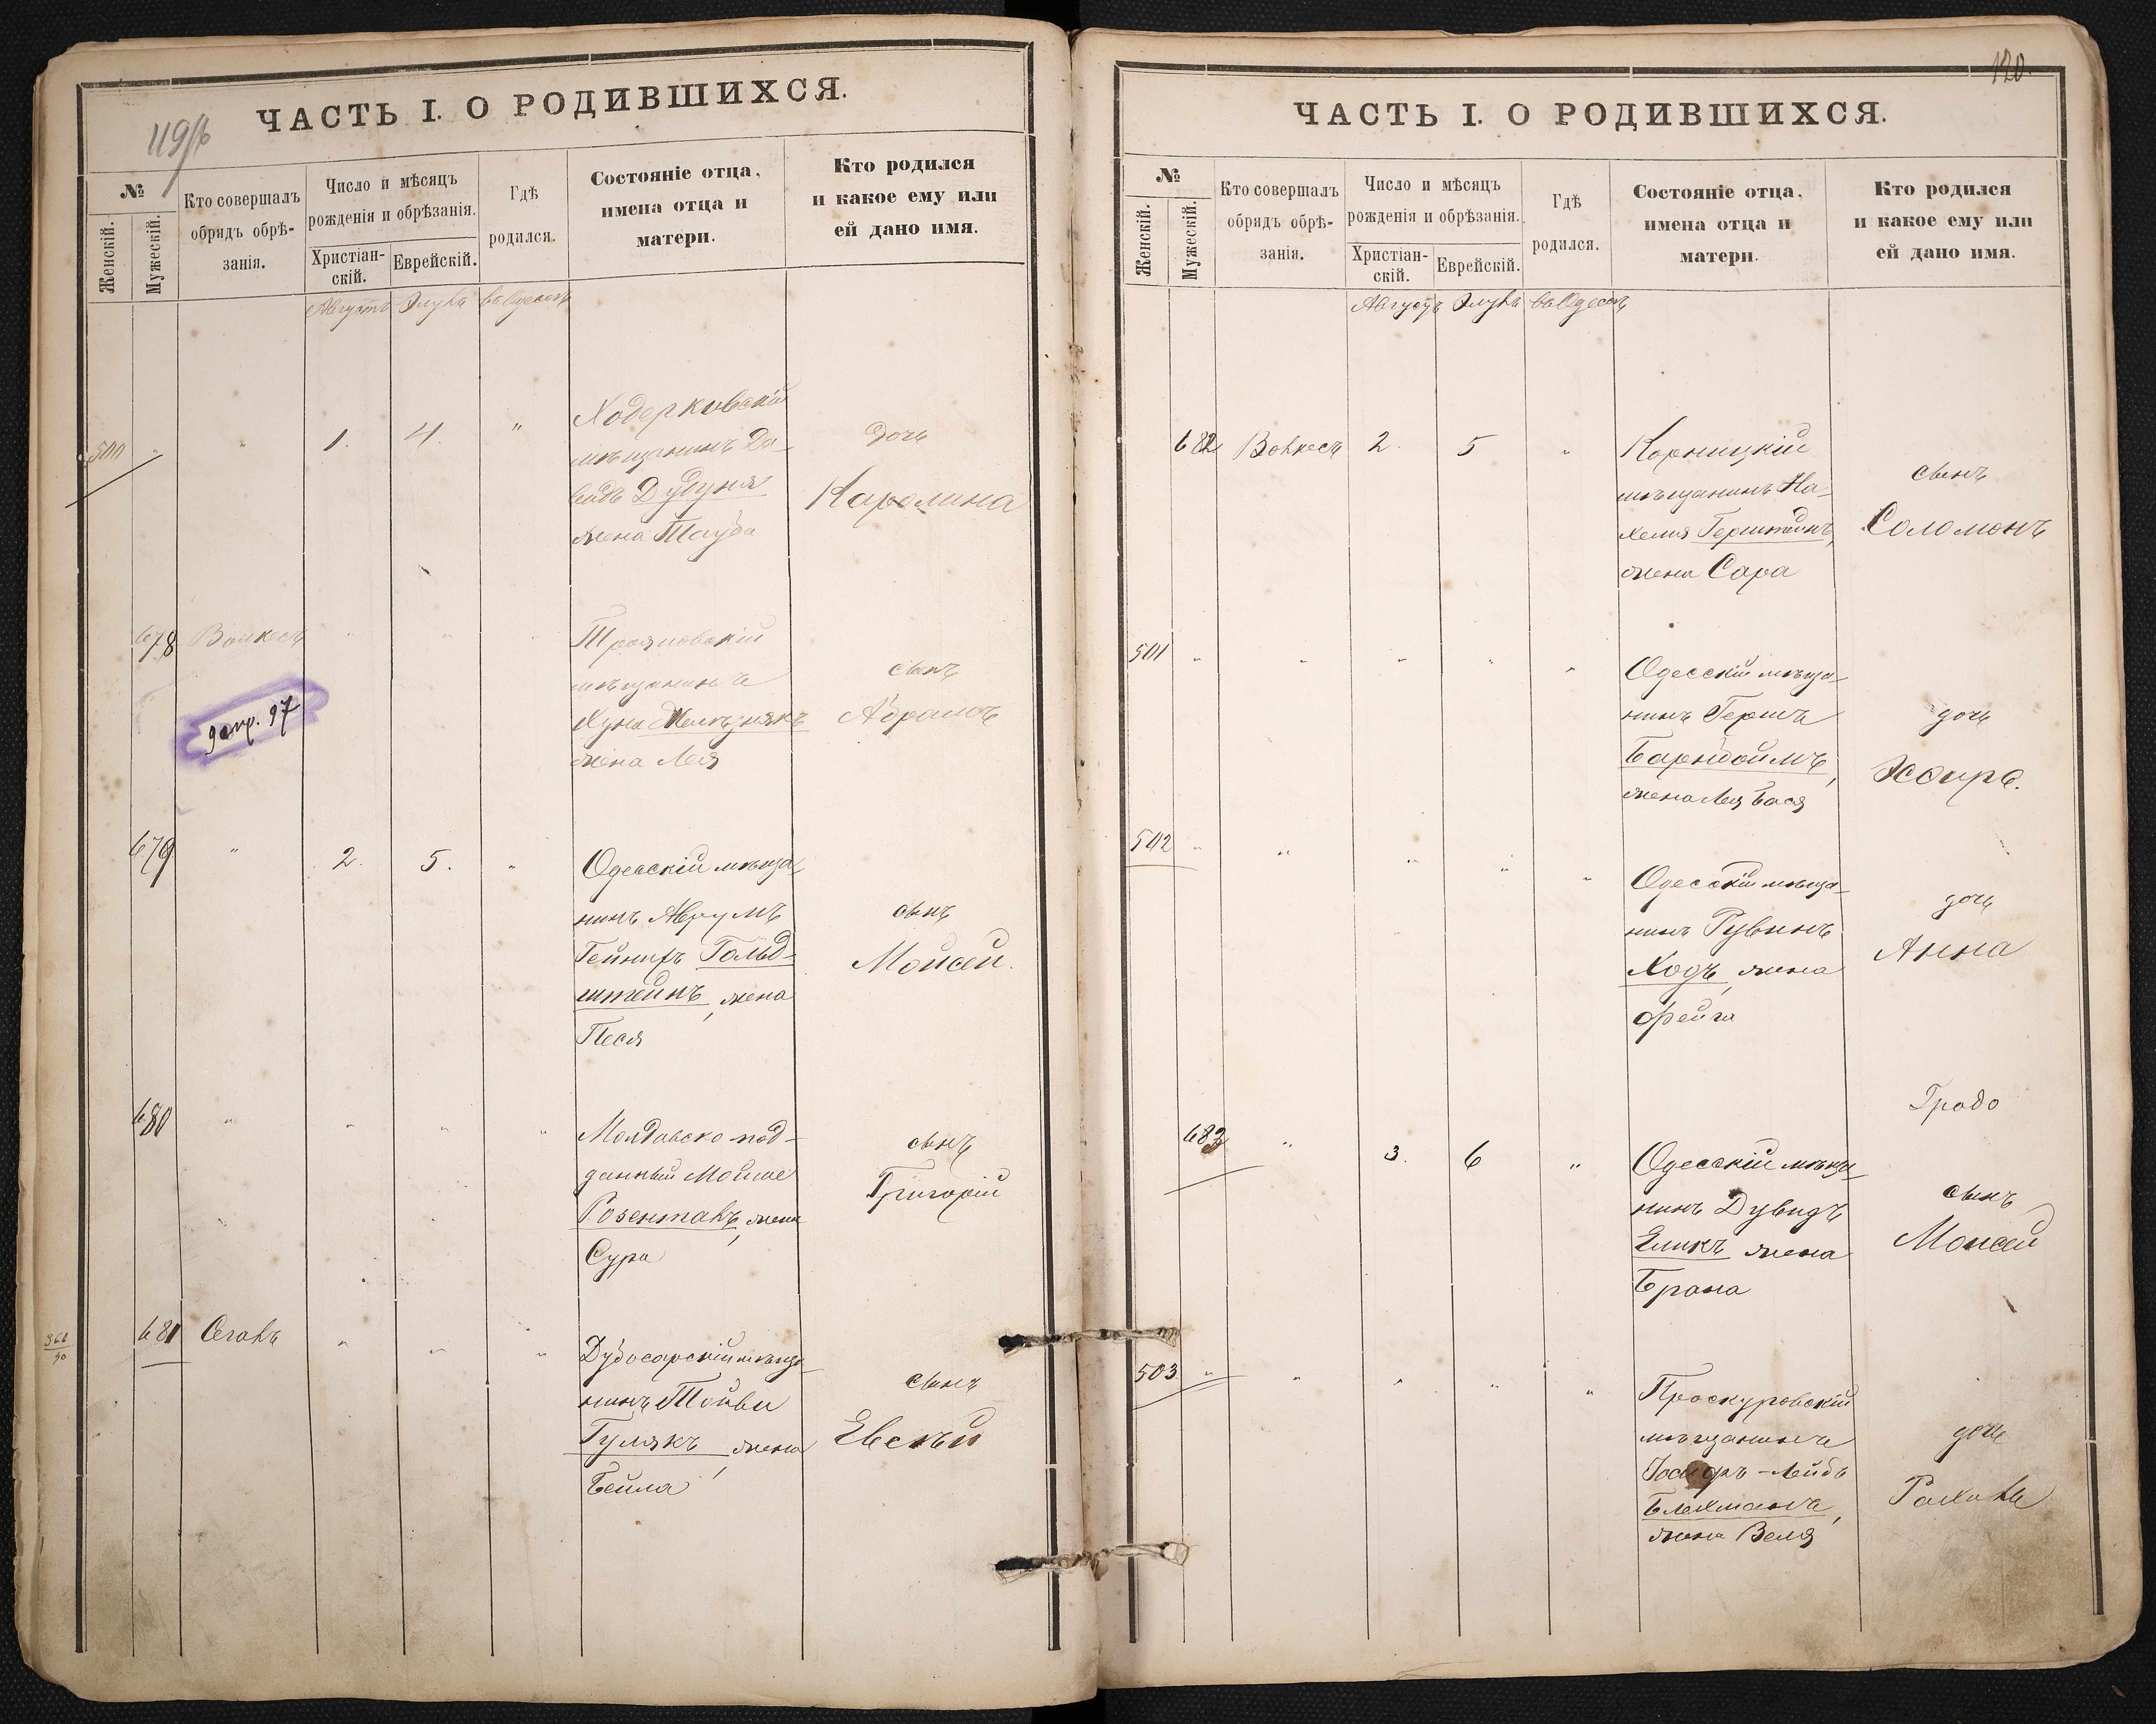 119/б
ЧАСТЬ I. О РОДИВШИХСЯ.
№
Женскій.
Мужескій.
Кто совершалъ
обрядъ обрѣ-
занія.
Число и мѣсяцъ
рожденія и обрѣзанія.
Христіан-
скій.
Еврейскій.
Гдѣ
родился.
Состояніе отца,
имена отца и
матери.
Кто родился
и какое ему или
ей дано имя.
Августъ Элулъ въ Одессѣ
500 " " 1. 4. "
Ходорковскій
мѣщанинъ Да-
видъ
жена Тауба
дочь
Каролина
678 " " "
Трояновскій
мѣщанинъ
Хуна Желѣзнякъ
жена Лея
сынъ
Абрамъ
97
679 " 2. 5. "
Одесскій мѣща-
нинъ Аврумъ
Гольд-
штейнъ, жена
Песя
сынъ
Моисей.
680 " " " "
Молдавско-под-
данный Мойше
жена
Сура
сынъ
Григорій
681 Сегалъ " " "
Дубосарскій мѣща-
нинъ Тойви
Гулякъ, жена
Бейла
сынъ
Евсѣй
120.
ЧАСТЬ I. О РОДИВШИХСЯ.
№
Женскій.
Мужескій.
Кто совершалъ
обрядъ обрѣ-
занія.
Число и мѣсяцъ
рожденія и обрѣзанія.
Христіан-
скій.
Еврейскій.
Гдѣ
родился.
Состояніе отца,
имена отца и
матери.
Кто родился
и какое ему или
ей дано имя.
Августъ Элулъ въ Одессѣ
682 2. 5 "
Корницкій
мѣщанинъ На-
хемія Герштейнъ,
жена Сара
сынъ
Соломонъ
501 " " " " "
Одесскій мѣща-
нинъ Гершъ
Барнбоймъ,
жена Лея Бася
дочь
Эсѳирь.
502 " " " " "
Одесскій мѣща-
нинъ Рувинъ
Ходъ, жена
Фейга
дочь
Анна
683 " 3. 6 "
Одесскій мѣща-
нинъ Дувидъ
Еликъ жена
Брана
сынъ
Моисей
503 " " " " "
Проскуровскій
мѣщанинъ
Іосифъ-Лейбъ
Блехманъ,
жена Веля
дочь
Рахиль